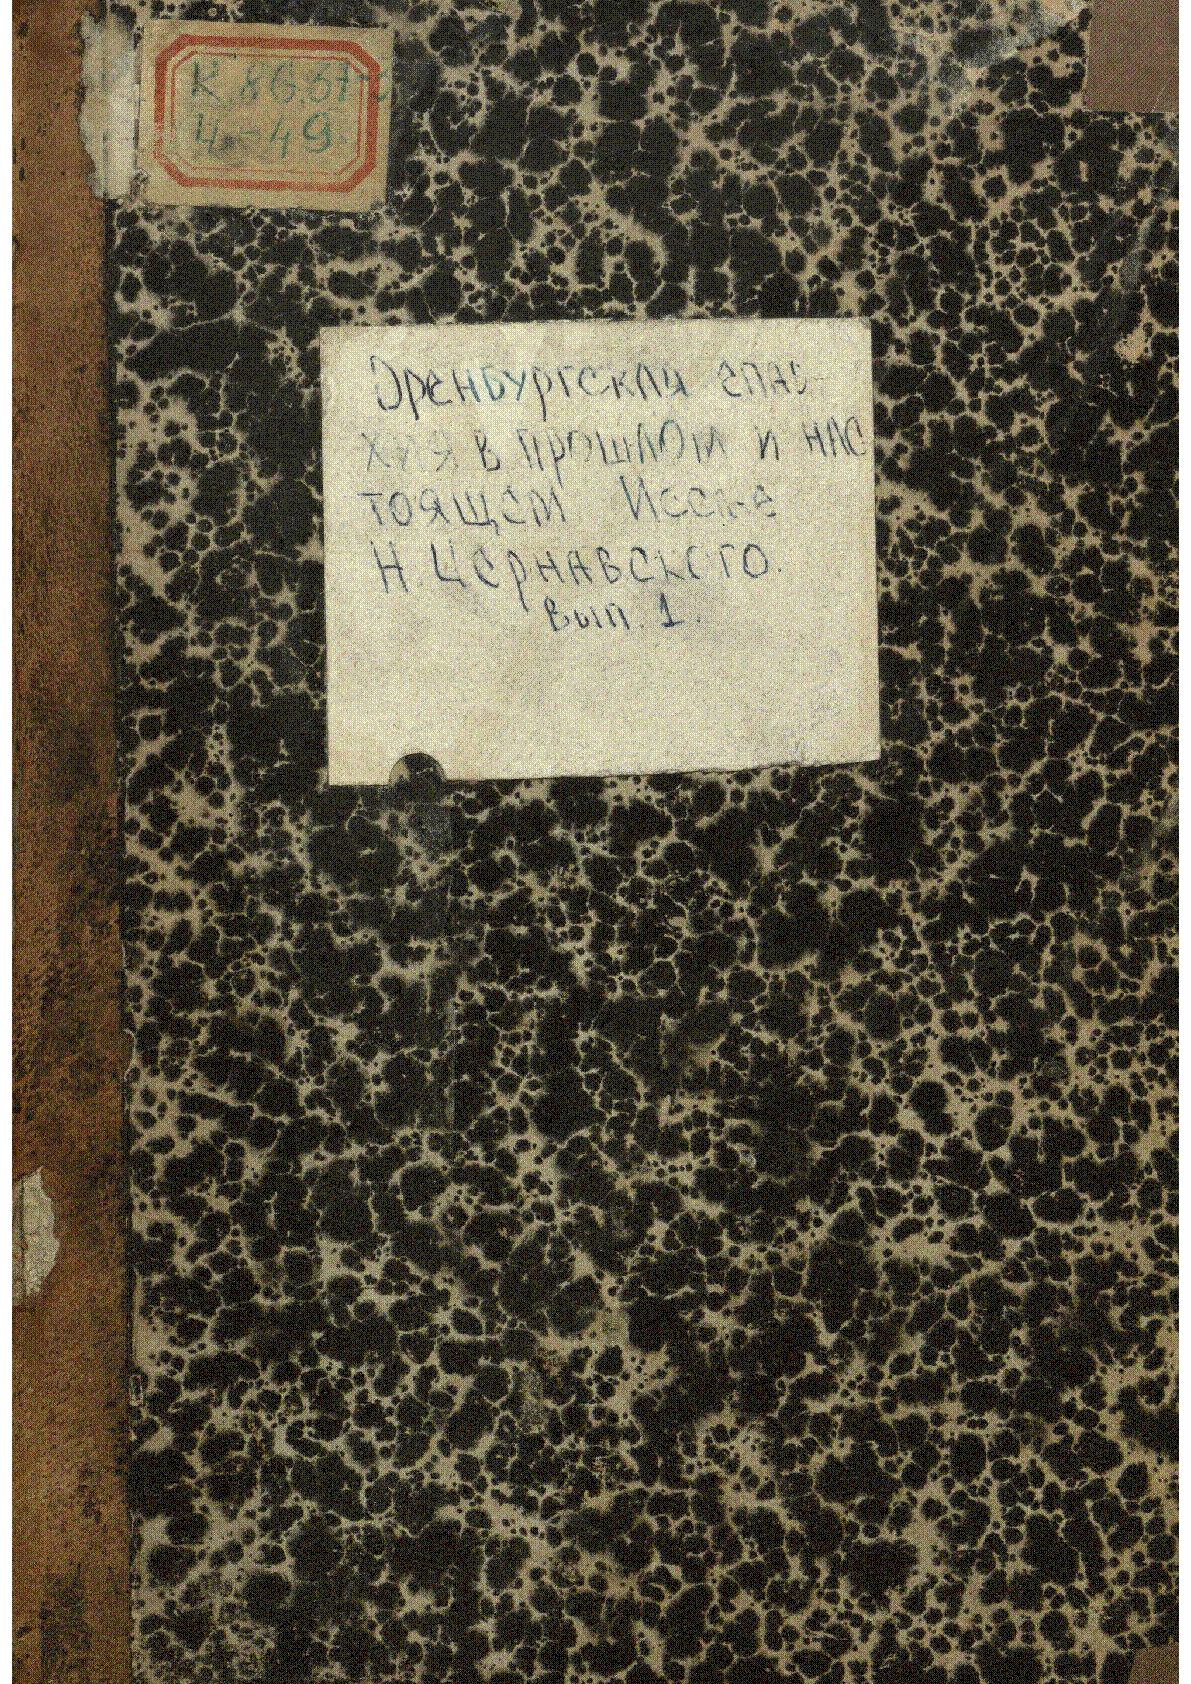 К 86.37
Ч-49
Оренбургская епар-
хия в прошлом и нас
тоящем Иссл-е
Н. Чернавского.
Вып. 1.